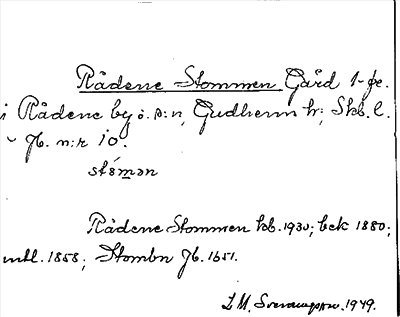 Rådene Stommen Gård 1-fe.
i Rådene by o. s:n, Gudhems hd, Skb. l.
Jb. n:r 10.
stómən
Rådene Stommen kb. 1930; bek 1880;
mtl. 1858; Stombn Jb. 1651.
1949.